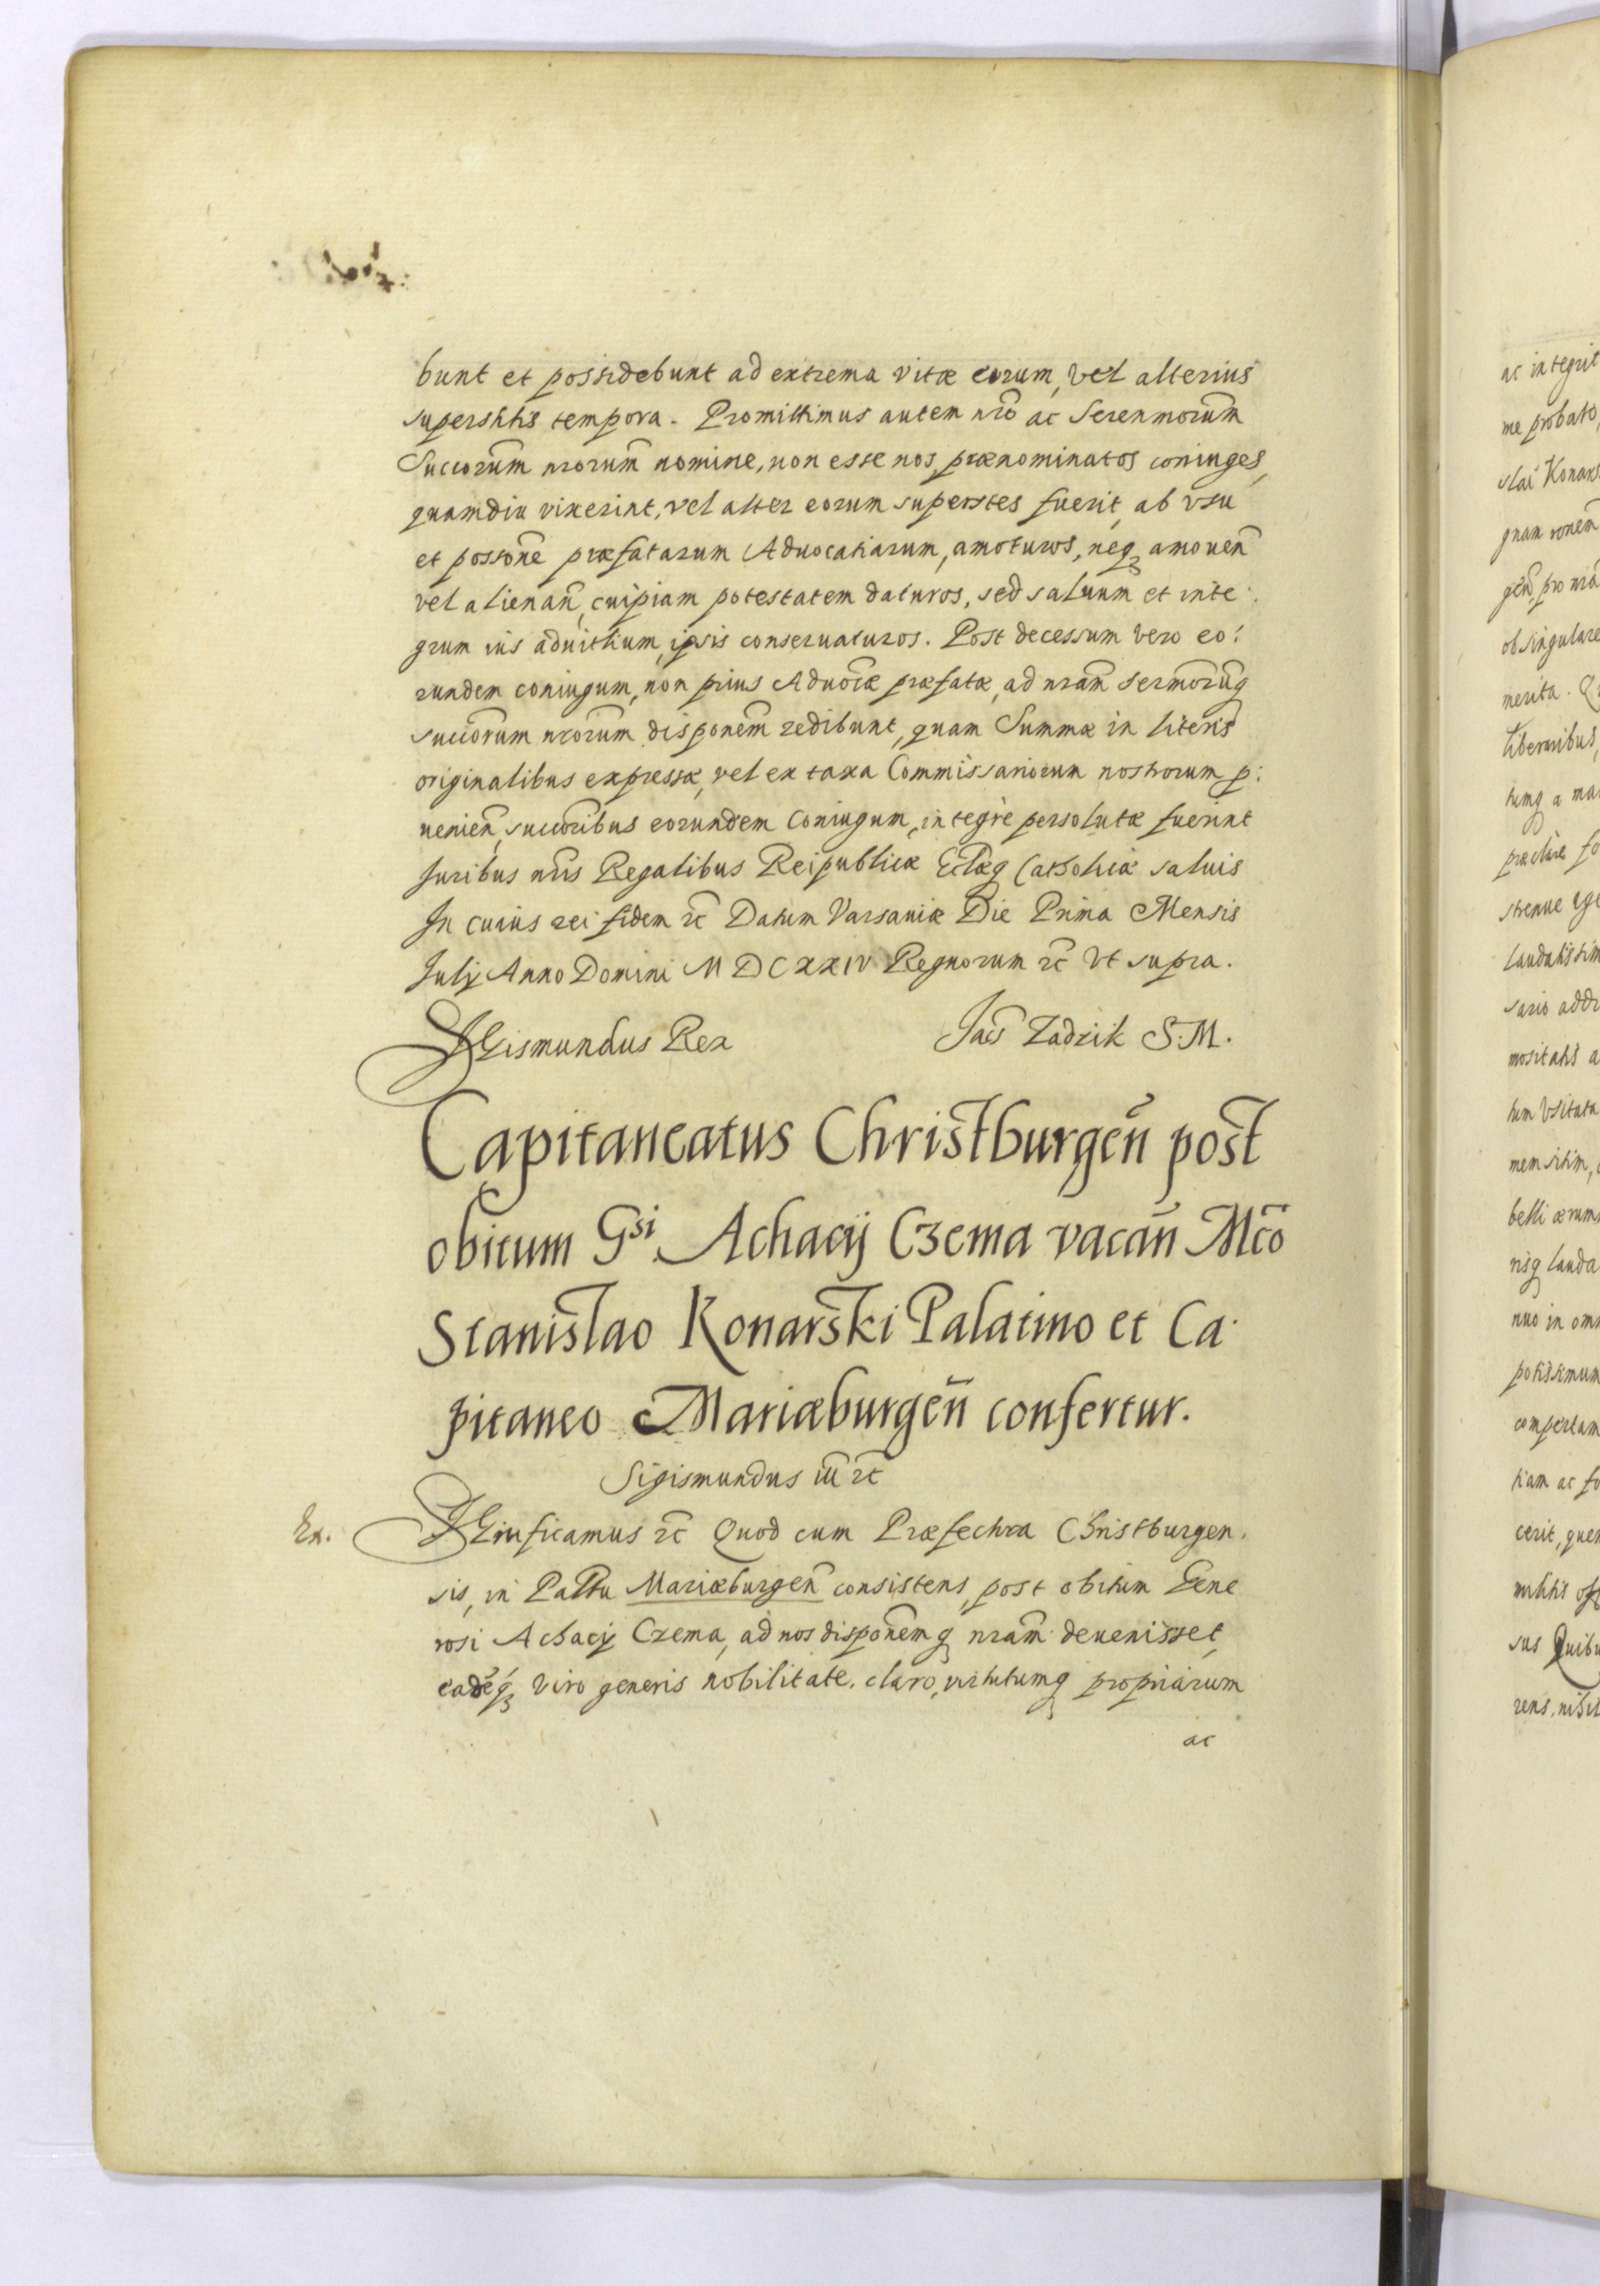 bunt et possidebunt ad extrema vitæ eorum, vel alterius
superstitis tempora. Promittimus autem nr̃o ac Serenmorum̃
Succorum̃ nrorum̃ nomine, non esse nos, prænominatos coniuges,
quamdiu vixerint, vel alter eorum superstes fuerit, ab vsu
et possone͂ præfatarum Aduocatiarum, amoturos, neqꝫ amouen͂
vel alienan͂, cuipiam potestatem daturos, sed saluum et inte:
grum ius aduitium, ipsis conseruaturos. Post decessum vero eo:
rundem coniugum, non prius Aduocĩæ præfatæ, ad nram̃ sermorum̃qꝫ
succorum̃ nrorum̃ disponem̃ redibunt, quam Summæ in literis
originalibus expressæ, vel ex taxa Commissariorum nostrorum p:
uenien͂, succoribus eorundem Coniugum, integrè persolutæ fuerint
Juribus nris̃ Regalibus Reipublicæ Eclæ͂qꝫ Catholicæ saluis
In cuius rei fidem ꝛc̃ Datum Varsauiæ Die Prima Mensis
Julij Anno Domini M DCXXIV Regnorum ꝛc̃ Vt supra.
SIGismundus Rex Jacs̃ Zadzik S.M.
Capitaneatus Christburgen͂ post
obitum Gsi Achacij Czema vacan͂ Mco͂
Stanislao Konarski Palatino et Ca-
pitaneo Mariæburgen͂ confertur.
Sigismundus iii͂ ꝛc̃
Ex. SIGnificamus ꝛc̃ Quod cum Præfectura Christburgen-
sis, in Paltu͂ Mariæburgen͂ consistens, post obitum Gene
rosi Achacij Czema, ad nos disponem̃qꝫ nram̃ deuenisset,
eadẽqꝫ Viro generis nobilitate claro, virtutumqꝫ propriarum
ac
ac integrit
me probato,
slai Konars
quam ronem̃
gen͂, pro nra͂
ob singulare
merita. Q
tumqꝫ a ma
præclare fo
strenue ege
laudatissim
sario addr
mositatis a
tum Vsitata
mem sitim,
belli ærum
nisqꝫ lauda
nuo in om
potissimum
compertam
tiam ac fo
cerit, quem
militis off
sus Quibu
rens, nihil